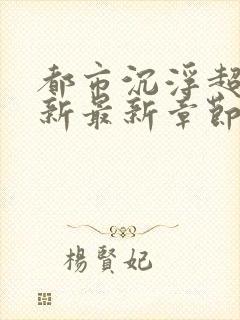 都市沉浮超
新最新章節
楊賢妃